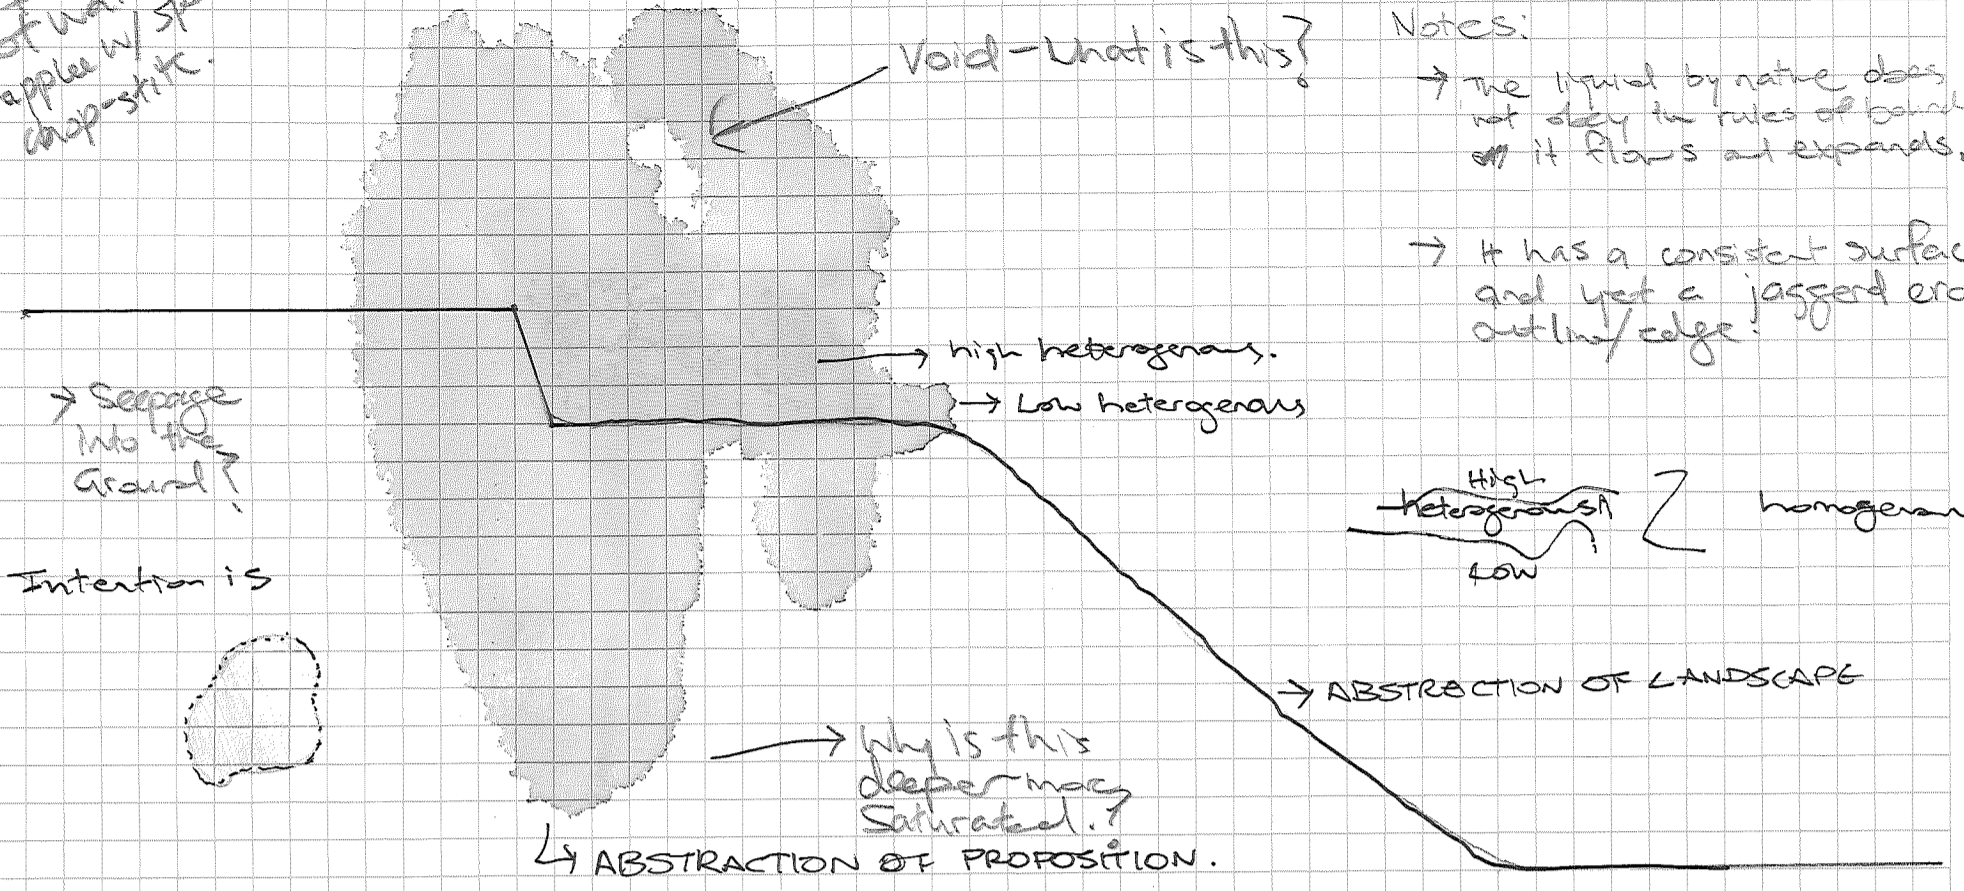 of wa
applee w/ sp
chop-stitc.
Void - What is this?
Notes:
→ The liquid by native does
not obey the rules of bound
it flows and expands.
→ It has a consistent surfac
and yet a jaggerd
outline/edge.
→ high heterogenous.
→ Low heterogenous
→ Seepage
into the
Ground?
High
heterogenous
Low
homogenou
Intention is
→ ABSTRACTION OF LANDSCAPE
→ Why is this
deeper more
Saturated.?
↳ ABSTRACTION OF PROPOSITION.